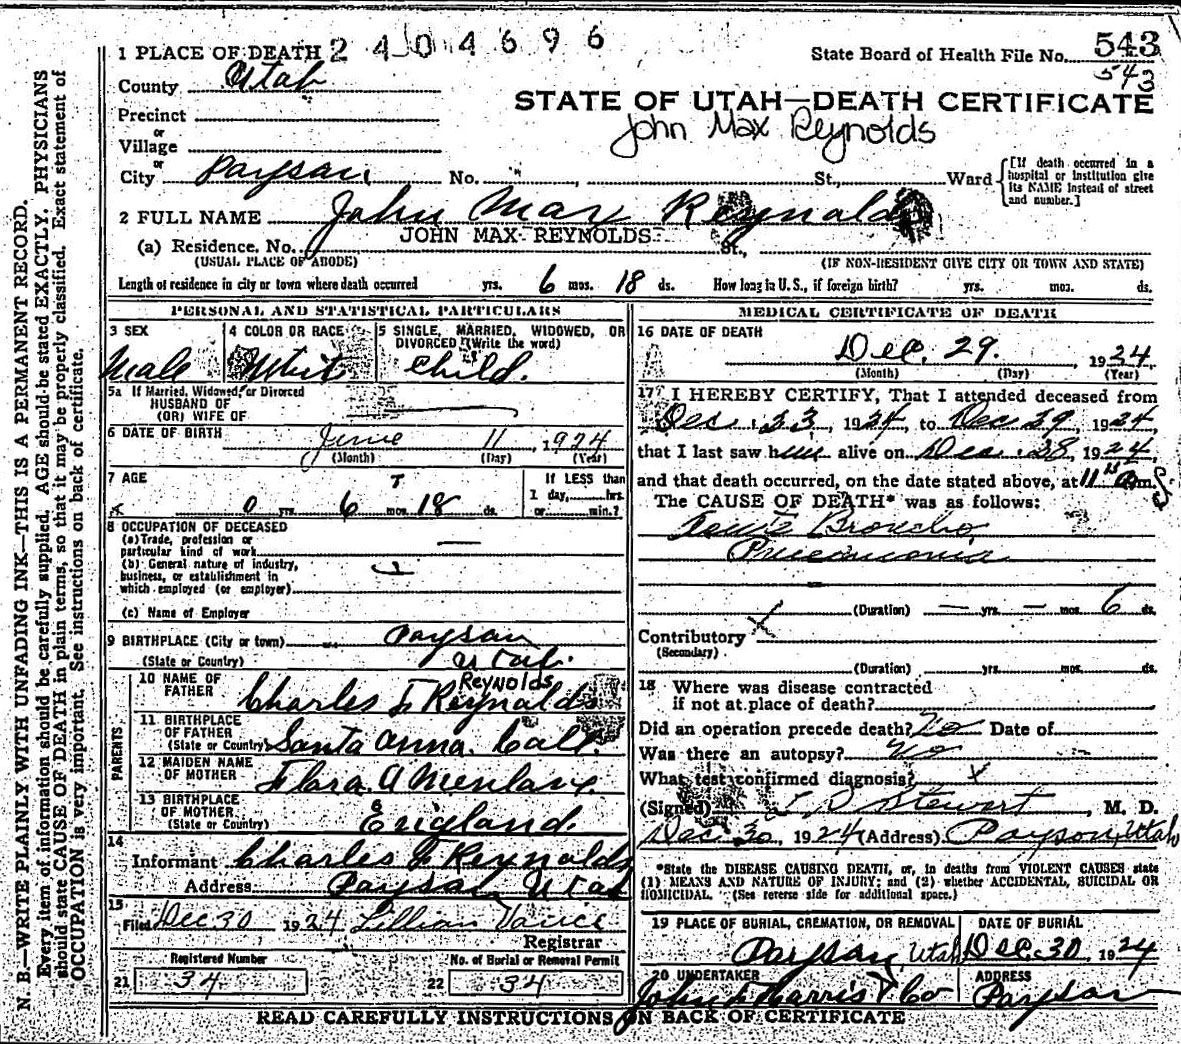 1 PLACE OF DEATH 2404696 State Board of Health File No. 543
543
County Utah
STATE OF UTAH—DEATH CERTIFICATE
Precinct
or
John Max Reynolds
Village
or
City Payson No. St., Ward [If death occurred in a hospital or institution give its NAME instead of street and number.]
2 FULL NAME John Max Reynolds
JOHN MAX REYNOLDS
(a) Residence. No. St.,
(USUAL PLACE OF ABODE) (IF NON-RESIDENT GIVE CITY OR TOWN AND STATE)
Length of residence in city or town where death occurred yrs. 6 mos. 18 ds. How long in U.S., if foreign birth? yrs. mos. ds.
PERSONAL AND STATISTICAL PARTICULARS
3 SEX 4 COLOR OR RACE 5 SINGLE, MARRIED, WIDOWED, OR DIVORCED (Write the word)
Male Whit Child.
5a If Married, Widowed, or Divorced
HUSBAND OF
(OR) WIFE OF
6 DATE OF BIRTH June 11, 1924
(Month) (Day) (Year)
7 AGE If LESS than
1 day, hrs.
0 yrs. 6 mos. 18 ds. or min.?
8 OCCUPATION OF DECEASED
(a) Trade, profession or
particular kind of work —
(b) General nature of industry,
business, or establishment in
which employed (or employer)
(c) Name of Employer
9 BIRTHPLACE (City or town) Payson
(State or Country) Utah.
PARENTS
REYNOLDS
10 NAME OF FATHER Charles F Reynolds
11 BIRTHPLACE OF FATHER
(State or Country) Santa Anna. Calf.
12 MAIDEN NAME OF MOTHER Flora A Menlove.
13 BIRTHPLACE OF MOTHER
(State or Country) England.
14
Informant Charles F Reynolds
Address Payson Utah
15
Filed Dec 30 1924 Lillian
Registrar
Registered Number No. of Burial or Removal Permit
21 34 22 34
MEDICAL CERTIFICATE OF DEATH
16 DATE OF DEATH
Dec. 29. 1924
(Month) (Day) (Year)
17 I HEREBY CERTIFY, That I attended deceased from
Dec. 23, 1924, to Dec 29, 1924,
that I last saw him alive on Dec. 28, 1924,
and that death occurred, on the date stated above, at 11 a m.
The CAUSE OF DEATH* was as follows:
Broncho
Pneumonia
(Duration) — yrs. — mos. 6 ds.
Contributory X
(Secondary)
(Duration) yrs. mos. ds.
18 Where was disease contracted
if not at place of death?
Did an operation precede death? No Date of
Was there an autopsy? No
What test confirmed diagnosis? X
(Signed) L D Stewart, M. D.
Dec 30, 1924 (Address) Payson, Utah
*State the DISEASE CAUSING DEATH, or, in deaths from VIOLENT CAUSES state
(1) MEANS AND NATURE OF INJURY; and (2) whether ACCIDENTAL, SUICIDAL OR
HOMICIDAL. (See reverse side for additional space.)
19 PLACE OF BURIAL, CREMATION, OR REMOVAL DATE OF BURIAL
Payson, Utah Dec. 30 1924
20 UNDERTAKER ADDRESS
John F Harris & Co Payson
READ CAREFULLY INSTRUCTIONS ON BACK OF CERTIFICATE
N. B.—WRITE PLAINLY WITH UNFADING INK—THIS IS A PERMANENT RECORD.
Every item of information should be carefully supplied. AGE should be stated EXACTLY. PHYSICIANS
should state CAUSE OF DEATH in plain terms, so that it may be properly classified. Exact statement of
OCCUPATION is very important. See instructions on back of certificate.